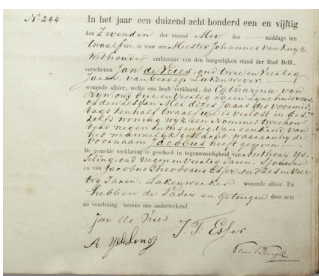 No 244
In het jaar een duizend acht honderd een en vijftig
den Zevenden der maand Mei des middags ten
twaalf ure, is voor mij Meester Johannes van Kuyk
Wethouder ambtenaar van den burgerlijken stand der Stad Delft,
verschenen Jan de Vries, oud twee en veertig
Jaren van beroep Lakenwever
wonende alhier, welke ons heeft verklaard, dat Catharina van
oud drie en veertig
op den Mei dezer Jaars des voormid
dags ten half twaalf ure is verlost in des
zelfs woning wijk een Nommer
negen en van een kind van
het mannelijk geslacht, waaraan hij de
voornaam Jacobus heeft gegeven
De gemelde verklaring is geschied in tegenwoordigheid van Anthony IJs
seling, oud negen en veertig Jaren,
en van Jacobus Theodorus Esser, oud
tig Jaren, Lakenwerker wonende alhier. En
hebben de Vader en Getuigen deze acte
na voorlezing nevens ons onderteekend.
Jan de Vries
J. T. Esser
A IJsseling
van Kuyk